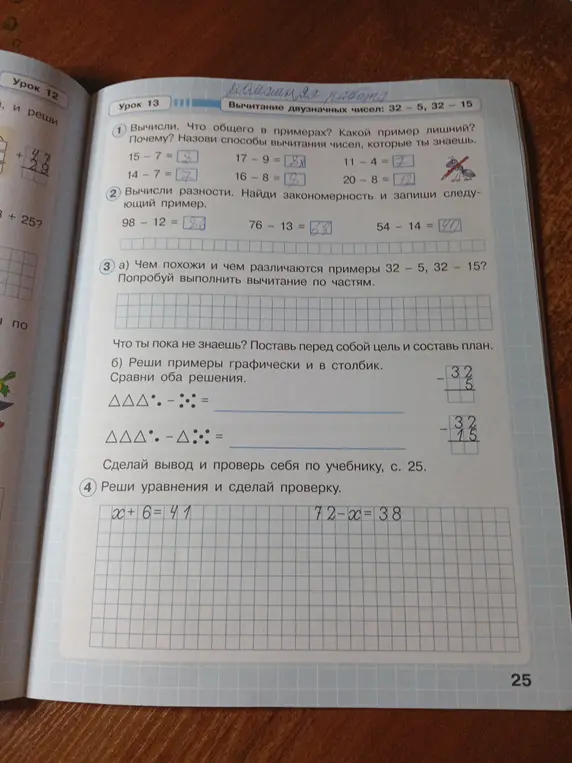 Урок 12
домашняя работа
Урок 13
Вычитание двузначных чисел: 32 – 5, 32 – 15
и реши
+ 47
29
+ 25?
по
1 Вычисли. Что общего в примерах? Какой пример лишний?
Почему? Назови способы вычитания чисел, которые ты знаешь.
15 – 7 = 8 17 – 9 = 11 – 4 = 7
14 – 7 = 7 16 – 8 = 20 – 8 = 12
2 Вычисли разности. Найди закономерность и запиши следу-
ющий пример.
98 – 12 = 76 – 13 = 63 54 – 14 = 40
3 а) Чем похожи и чем различаются примеры 32 – 5, 32 – 15?
Попробуй выполнить вычитание по частям.
Что ты пока не знаешь? Поставь перед собой цель и составь план.
б) Реши примеры графически и в столбик.
Сравни оба решения.
– 32
5
– =
– 32
15
– =
Сделай вывод и проверь себя по учебнику, с. 25.
4 Реши уравнения и сделай проверку.
x + 6 = 41 72 – x = 38
25